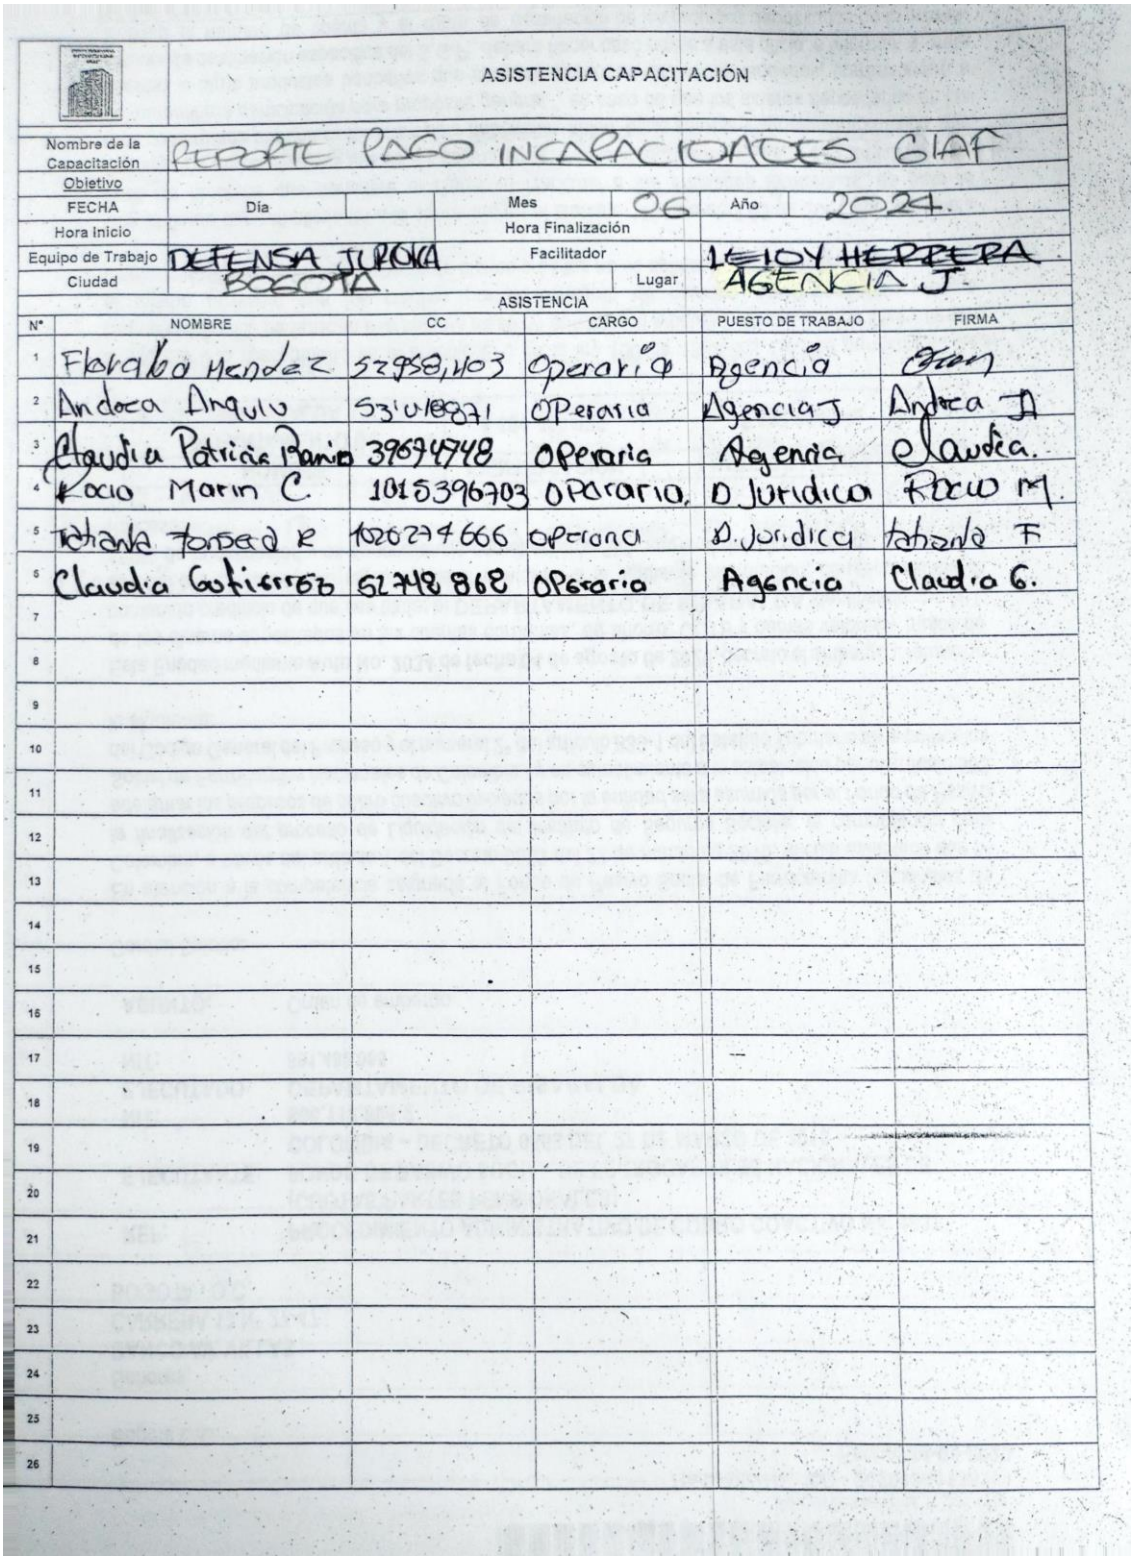 ASISTENCIA CAPACITACIÓN
Nombre de la Capacitación REPORTE PAGO INCAPACIDADES GIAF
Objetivo
FECHA Dia Mes 06 Año 2024.
Hora Inicio Hora Finalización
Equipo de Trabajo DEFENSA JURIDICA Facilitador LEIDY HERRERA
Ciudad BOGOTA Lugar AGENCIA J.
ASISTENCIA
N° NOMBRE CC CARGO PUESTO DE TRABAJO FIRMA
1 Floralba Mendez 52958,403 Operaria Agencia
2 Andrea Angulo OPeraria Agencia J Andrea JA
3 Claudia Patricia 39674748 OPeraria Agencia Claudia.
4 Rocio Marin C. 1015396703 OPeraria. D Juridica Rocio M.
5 Tatiana Fonseca R 1026274.666 operaria D. Juridica tatiana F
6 Claudia Gutierrez 52748 868 OPeraria Agencia Claudia G.
7
8
9
10
11
12
13
14
15
16
17
18
19
20
21
22
23
24
25
26